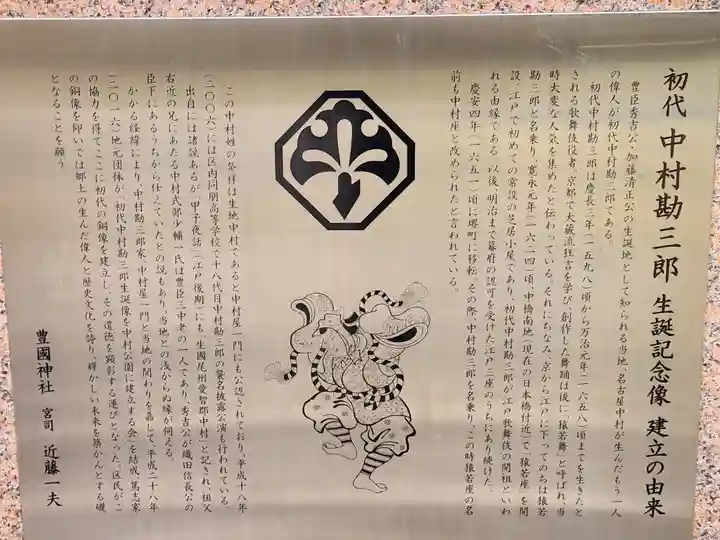 初代 中村勘三郎 生誕記念像 建立の由来
豊臣秀吉公・加藤清正公の生誕地として知られる当地、名古屋中村が生んだもう一人
の偉人が初代中村勘三郎である。
初代中村勘三郎は慶長三年(一五九八)頃から万治元年(一六五八)頃までを生きたと
される歌舞伎役者。京都で大蔵流狂言を学び、創作した舞踊は後に「猿若舞」と呼ばれ、当
時大変な人気を集めたと伝わっている。それにちなみ、京から江戸に下ってのちは猿若
勘三郎と名乗り、寛永元年(一六二四)頃、中橋南地(現在の日本橋付近)で「猿若座」を開
設。江戸で初めての常設の芝居小屋であり、初代中村勘三郎が江戸歌舞伎の開祖といわ
れる由縁である。以後、明治まで幕府の認可を受けた江戸三座のうちにあり続けた。
慶安四年(一六五一)頃に堺町に移転。その際、中村勘三郎を名乗り、この時猿若座の名
前も中村座と改められたと言われている。
この中村姓の発祥は生地中村であると中村屋一門にも公認されており、平成十八年
(二〇〇六)には区内同朋高等学校で十八代目中村勘三郎の襲名披露公演も行われている。
出自には諸説あるが、「甲子夜話」(江戸後期)にも「生國尾州愛智郡中村」と記され、祖父
右近の兄にあたる中村式部少輔一氏は豊臣三中老の一人であり、秀吉公が織田信長公の
臣下にあるうちから仕えていたとの説もあり、当地との浅からぬ縁が伺える。
かかる経緯により、中村勘三郎家、中村屋一門と当地の関わりを嘉して、平成二十八年
(二〇一六)地元団体が「初代中村勘三郎生誕像を中村公園に建立する会」を結成、篤志家
の協力を得てここに初代の銅像を建立し、その遺徳を顕彰する運びとなった。区民がこ
の銅像を仰いでは郷土の生んだ偉人と歴史文化を誇り、輝かしい未来を築かんとする礎
となることを願う
豊國神社 宮司 近藤一夫